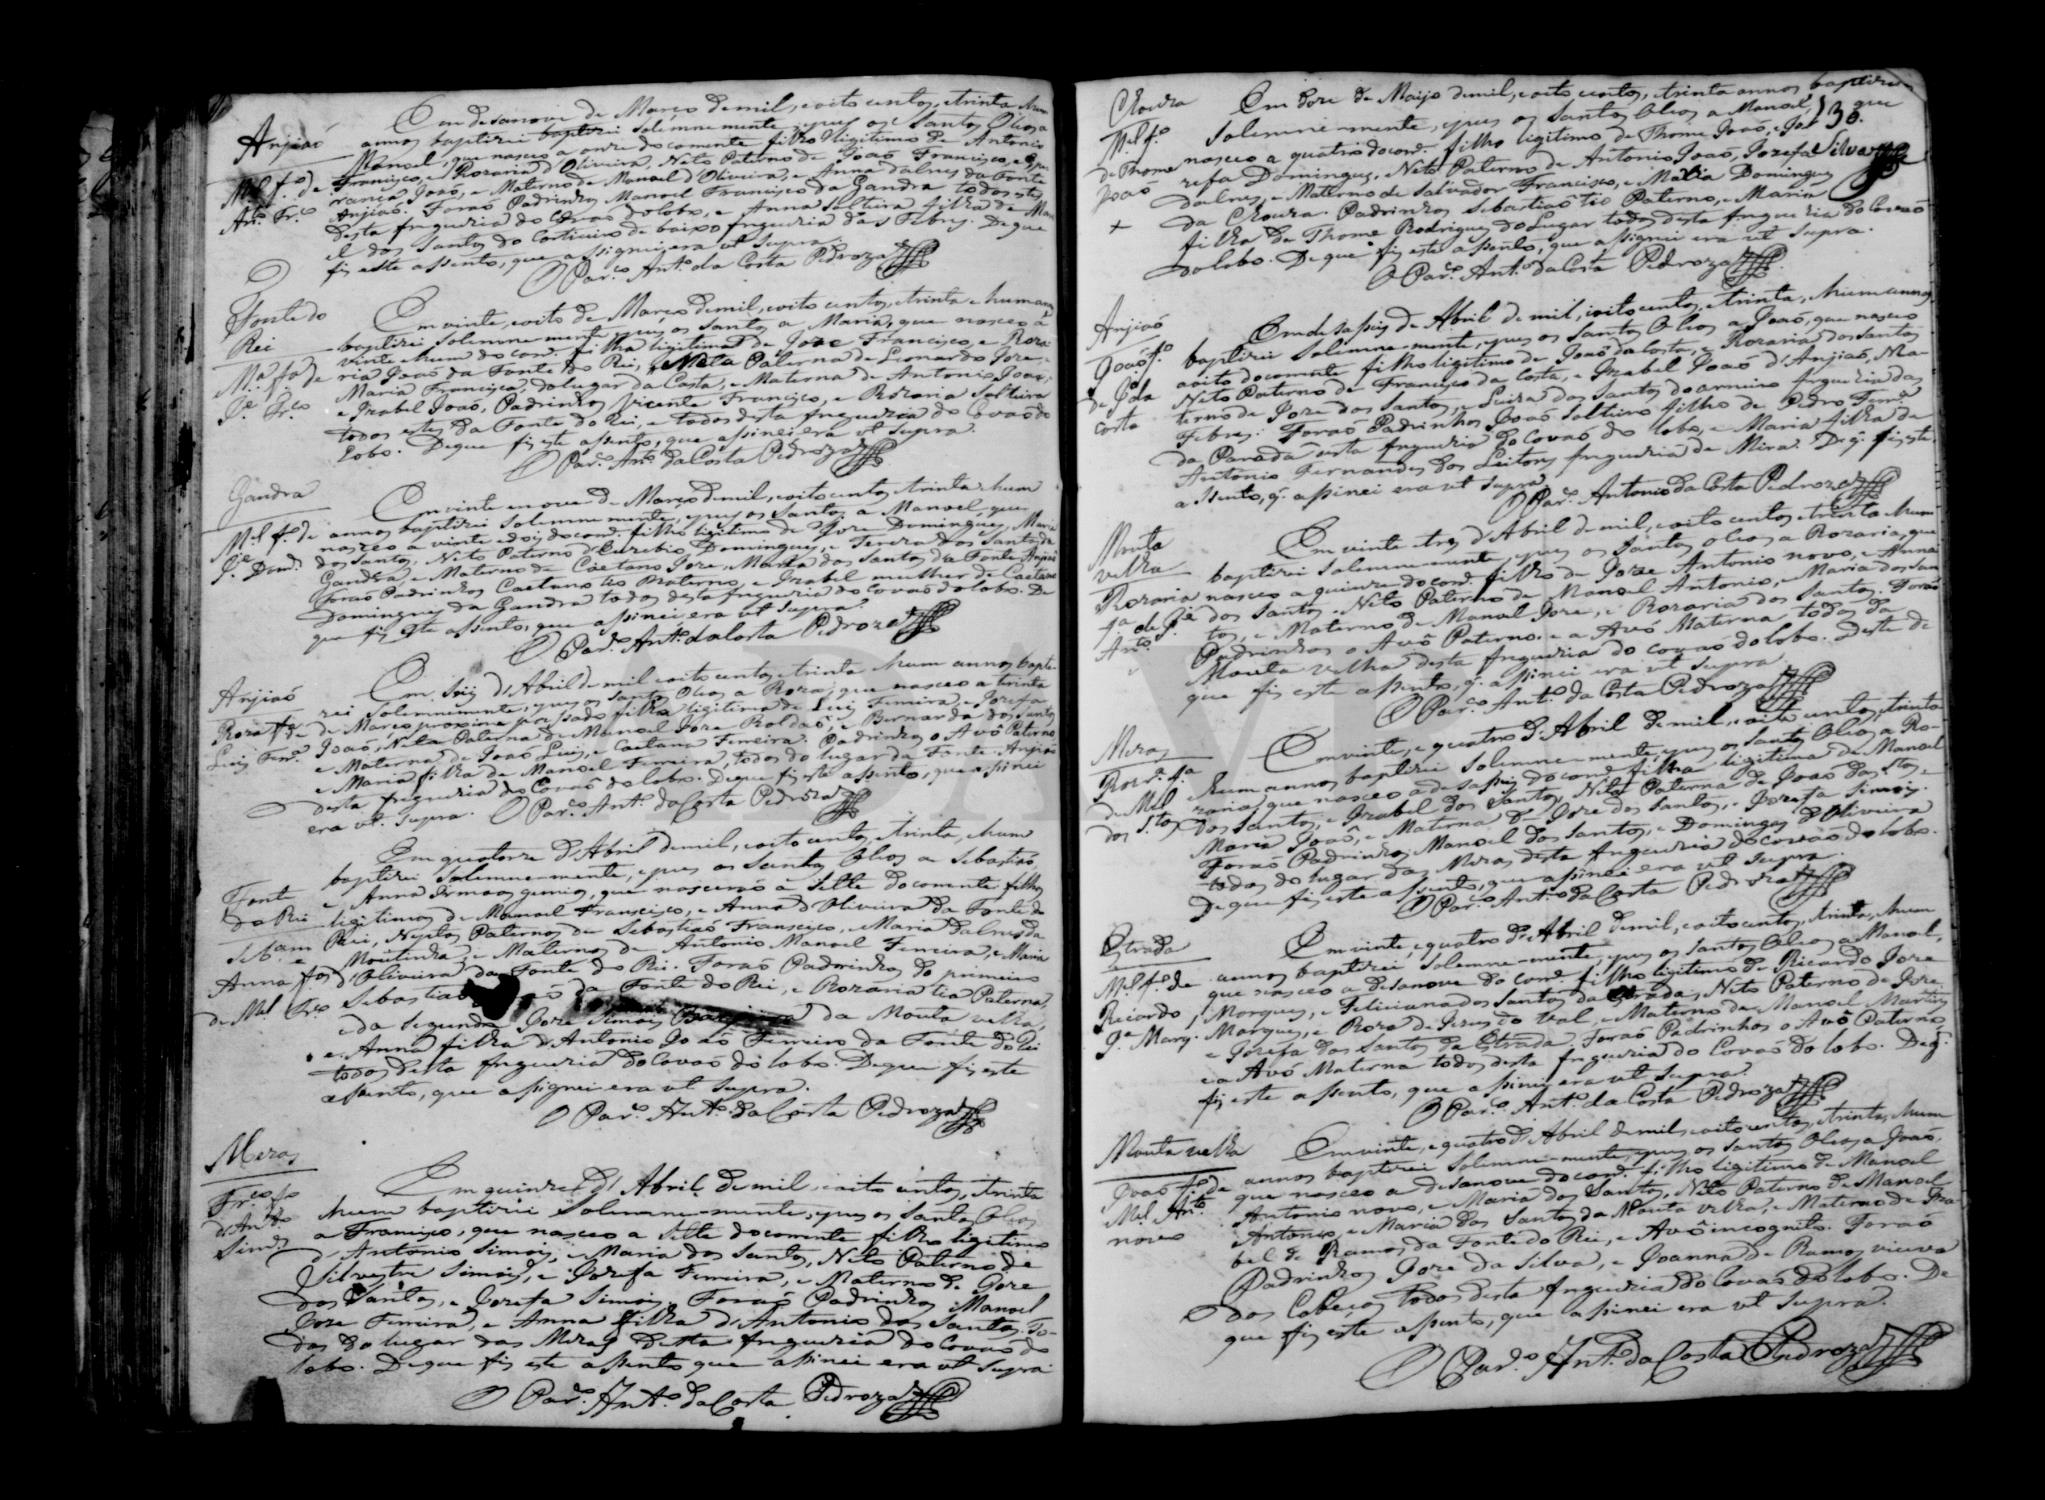 Anjiaõ
Mel. fo. de
Anto. Frco.
Em desanove de Março de mil, e oito centos, e trinta e hum
annos baptizei solemnemente, e pus os Santos Oleos a
Manoel, que nasceo a onze do corrente filho legitimo de Antonio
Francisco, e Rozaria d'Oliveira, Neto Paterno de Joaõ Francisco, e
Joaõ, e Materno de Manoel d'Oliveira, e Anna da Fonte
Anjiaõ. Foraõ Padrinhos Manoel Francisco da Gandra todos
desta freguezia do Covaõ do Lobo, e Anna solteira filha de
dos Santos do Corticeiro de baixo freguezia das Febres. De que
fis este assento, que assignei era ut supra.
O Paro. Anto. da Costa Pedroza
Fonte do
Rei
Ma. fa. de
Je. Frco.
Em vinte, e oito de Março de mil, e oito centos, e trinta e hum annos
baptizei solemnemente, e pus os Santos a Maria, que nasceo a
vinte e hum do corre. filha legitima de Joze Francisco, e Roza-
ria Joaõ da Fonte do Rei, Neta Paterna de Leonardo Joze, e
Maria Francisca, do lugar da Costa, e Materna de Antonio Joaõ,
e Izabel Joaõ, Padrinhos Vicente Francisco, e Rozaria solteira
todos estes da Fonte do Rei, e todos desta freguezia do Covaõ do
Lobo. De que fis este assento, que assinei era ut supra.
O Paro. Anto. da Costa Pedroza
Gandra
Mel. fo. de
Je. Domes.
Em vinte e nove de Março de mil, e oito centos, e trinta e hum
annos baptizei solemnemente, e pus os Santos a Manoel, que
nasceo a vinte e dois do corre. filho legitimo de Joze Domingues, Maria
dos Santos, Neto Paterno d'Euzebio Domingues, e Tereza dos Santos da
Gandra, e Materno de Caetano Joze, e Maria dos Santos da Fonte Anjiaõ
Foraõ Padrinhos Caetano tio Materno, e Izabel mulher de Caetano
Domingues da Gandra todos desta freguezia do Covaõ do Lobo. De
que fis este assento, que assinei era ut supra.
O Paro. Anto. da Costa Pedroza
Anjiaõ
Roza fa. de
Luis Ferra.
Em seis d'Abril de mil e oito centos, e trinta e hum annos bapti-
zei solemnemente, e pus os Santos Oleos a Roza, que nasceo a trinta
de Março proximo passado filha legitima de Luis Ferreira, e Jozefa
Joaõ, Neta Paterna de Manoel Joze Roldaõ, e Bernarda dos Santos
e Materna de Joaõ Luis, e Caetana Ferreira. Padrinhos o Avô Paterno,
e Maria filha de Manoel Ferreira, todos do lugar da Fonte Anjiaõ
desta freguezia do Covaõ do Lobo. De que fis este assento, que assinei
era ut supra. O Paro. Anto. da Costa Pedroza
Fonte
do Rei
Sebam. e
Anna fos.
de Mel. Frco.
Em quatorze d'Abril de mil, e oito centos, e trinta, e hum
baptizei solemne-mente, e pus os Santos Oleos a Sebastiaõ,
e Anna Irmaos gemios, que nasceraõ a sette do corrente filhos
legitimos de Manoel Francisco, e Anna d'Oliveira da Fonte do
Rei, Neptos Paternos de Sebastiaõ Francisco, e Maria da
Moutinha, e Maternos de Antonio Manoel Ferreira, e Maria
d'Oliveira da Fonte do Rei. Foraõ Padrinhos do primeiro
Sebastiaõ da Fonte do Rei, e Rozaria tia Paterna,
e da segunda Joze Simois da Mouta velha,
e Anna filha d'Antonio Joaõ Ferreiro da Fonte do Rei
todos desta freguezia do Covaõ do lobo. De que fis este
assento, que assignei era ut supra.
O Paro. Anto. da Costa Pedroza
Meras
Frco. fo.
d'Anto.
Simois
Em quinze d'Abril de mil, e oito centos, e trinta
e hum baptizei solemne-mente, e pus os Santos Oleos
a Francisco, que nasceo a sette do corrente filho legitimo
d'Antonio Simois, e Maria dos Santos, Neto Paterno de
Silvestre Simois, e Jozefa Ferreira, e Materno de Joze
dos Santos, e Jozefa Simois. Foraõ Padrinhos Manoel
Joze Ferreira, e Anna filha d'Antonio dos Santos. To-
dos do lugar das Meras desta freguezia do Covaõ do
lobo. De que fis este assento que assinei era ut supra.
O Paro. Anto. da Costa Pedroza
Choura
Mel. fo.
de Thome
Joaõ
+
130.
Silva
Em doze de Maijo de mil, e oito centos, e trinta annos baptizei
solemne-mente, e pus os Santos Oleos a Manoel, que
nasceo a quatro do corre. filho legitimo de Thome Joaõ, e Jo-
zefa Domingues, Neto Paterno de Antonio Joaõ, Jozefa
e Materno de Salvador Francisco, e Maria Domingues
da Choura. Padrinhos Sebastiaõ tio Paterno, e Maria
filha de Thome Rodrigues do Lugar todos desta freguezia do Covaõ
do lobo. De que fis este assento, que assignei era ut supra.
O Paro. Anto. da Costa Pedroza
Anjiaõ
Joaõ fo.
de Joaõ da
Costa
Em desaseis de Abril de mil, e oito centos, e trinta, e hum annos
baptizei solemne-mente, e pus os Santos Oleos a Joaõ, que nasceo
a oito do corrente filho legitimo de Joaõ da Costa, e Rozaria dos Santos
Neto Paterno de Francisco da Costa, e Izabel Joaõ d'Anjiaõ, Ma-
terno de Joze dos Santos, e Luiza dos Santos do arneiro freguezia das
Febres. Foraõ Padrinhos Joaõ solteiro filho de Pedro Ferra.
da Parada desta freguezia do Covaõ do lobo, e Maria filha de
Antonio Fernandes dos Leitoes freguezia de Mira. De q. fis este
assento, q. assinei era ut supra.
O Paro. Antonio da Costa Pedroza
Mouta
velha
Rozaria
fa. de Je.
Anto.
Em vinte e tres d'Abril de mil, e oito centos e trinta e hum
baptizei solemne-mente, e pus os Santos Oleos a Rozaria, que
nasceo a quinze do corre. filha de Joze Antonio novo, e Anna
dos Santos. Neta Paterna de Manoel Antonio, e Maria dos San-
tos, e Materna de Manoel Joze, e Rozaria dos Santos. Foraõ
Padrinhos o Avô Paterno, e a Avó Materna todos da
Mouta velha desta freguezia do Covaõ do lobo. Deste de
que fis este assento, q. assinei era ut supra.
O Paro. Anto. da Costa Pedroza
Meras
Rozra. fa.
de Mel.
dos Stos.
Em vinte, e quatro d'Abril de mil, e oito centos, e trinta
e hum annos baptizei solemne-mente, e pus os Santos Oleos a Ro-
zaria, que nasceo a desaseis do corre. filha legitima de Manoel
dos Santos, e Izabel dos Santos, Neta Paterna de Joaõ dos Stos.,
Maria Joaõ, e Materna de Joze dos Santos, e Jozefa Simois.
Foraõ Padrinhos Manoel dos Santos, e Domingas d'Oliveira
todos do lugar das Meras desta freguezia do Covaõ do lobo.
De que fis este assento, que assinei era ut supra.
O Paro. Anto. da Costa Pedroza
Estrada
Mel. fo. de
Ricardo
Je. Marq.
Em vinte, e quatro d'Abril de mil, e oito centos, e trinta, e hum
annos baptizei solemne-mente, e pus os Santos Oleos a Manoel,
que nasceo a desanove do corre. filho legitimo de Ricardo Joze
Marques, e Feliciana dos Santos da Estrada, Neto Paterno de Joze
Marques, e Roza de Jezus do Seal, e Materno de Manoel Martins
e Jozefa dos Santos da Estrada, Foraõ Padrinhos o Avô Paterno
e a Avó Materna todos desta freguezia do Covaõ do lobo. De q.
fis este assento, que assinei era ut supra.
O Paro. Anto. da Costa Pedroza
Mouta velha
Joaõ fo. de
Mel. Anto.
novo
Em vinte, e quatro d'Abril de mil, e oito centos, e trinta, e hum
annos baptizei solemne-mente, e pus os Santos Oleos a Joaõ,
que nasceo a desanove do corre. filho legitimo de Manoel
Antonio novo, e Maria dos Santos, Neto Paterno de Manoel
Antonio, e Maria dos Santos da Mouta velha, e Materno de Iza-
bel de Ramos da Fonte do Rei, e Avô incognito. Foraõ
Padrinhos Joze da Silva, e Joanna de Ramos viuva
dos Cabeços todos desta freguezia do Covaõ do Lobo. De
que fis este assento, que assinei era ut supra.
O Paro. Anto. da Costa Pedroza
ADAVR